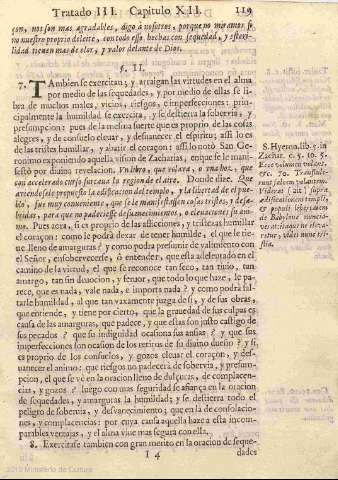 Tratado III. Capitulo XII. 119
çon, no son mas agradables, digo à nosotros, porque no miramos si-
no nuestro proprio deleite, con todo esso, hechas con sequedad, y esteri-
lidad tienen mas de olor, y valor delante de Dios.
§. II.
7. TAmbien se exercitan, y arraigan las virtudes en el alma
por medio de las sequedades, y por medio de ellas se li-
bra de muchos males, vicios, riesgos è imperfecciones: prin-
cipalmente la humildad se exercita, y se destierra la sobervia, y
presumpcion; pues de la misma suerte que es proprio de las cosas
alegres, y de consuelo elevar, y desvanecer el espiritu; assi lo es
de las tristes humillar, y abatir el coraçon: assi lo notò San Ge-
ronimo exponiendo aquella vision de Zacharias, en que se le mani-
festò por divina revelacion. Vn libro, que volava, ò vna hoz, que
con acelerado curso surcava la region de el aire. Donde dize. Que
aviendose propuesto la edificacion del templo, y la libertad de el pue-
blo, fue muy conveniente, que se le manifestassen cosas tristes, y desa-
bridas, para que no padeciesse desvanecimientos, ò elevaciones su ani-
mo. Pues aora, si es proprio de las aflicciones, y tristezas humillar
el coraçon: como le podrà dexar de tener humilde, el que le tie-
ne lleno de amarguras? y como podrà presumir de valimiento con
el Señor, ensobervecerse, ò entender, que esta adelantado en el
camino de la virtud, el que se reconoce tan seco, tan tibio, tan
amargo, tan sin devocion, y fervor, que todo lo que haze, le pa-
rece, que es nada, vale nada, è importa nada? y como podrà fal-
tarle humildad, al que tan vaxamente juzga de si, y de sus obras,
que entiende, y tiene por cierto, que la gravedad de sus culpas es
causa de las amarguras, que padece, y que estas son justo castigo de
sus pecados? que su indignidad ocasiona sus ansias? y que sus
imperfecciones son ocasion de los retiros de su divino dueño? y si
es proprio de los consuelos, y gozos elevar el coraçon, y des-
vanecer el animo: que riesgos no padecerà de sobervia, y presum-
pcion, el que se vè en la oracion lleno de dulçuras, de complacen-
cias, y gozos? luego con mas seguridad se afiança en la oracion
de sequedades, y amarguras la humildad; y se destierra todo el
peligro de sobervia, y desvanecimiento; que en la de consolacio-
nes, y complacencias: por cuya causa aquella haze à esta incom-
parables ventajas, y el alma vive mas segura con ella.
8. Exercitase tambien con gran merito en la oracion de seque-
I 4 dades
S. Hyeron. lib. 5. in
Zachar. c. 5. 10. 5.
Ecce volumen volans,
&c.
edificationem templi,
& populi
de Babylone
©2010 Ministerio de Cultura